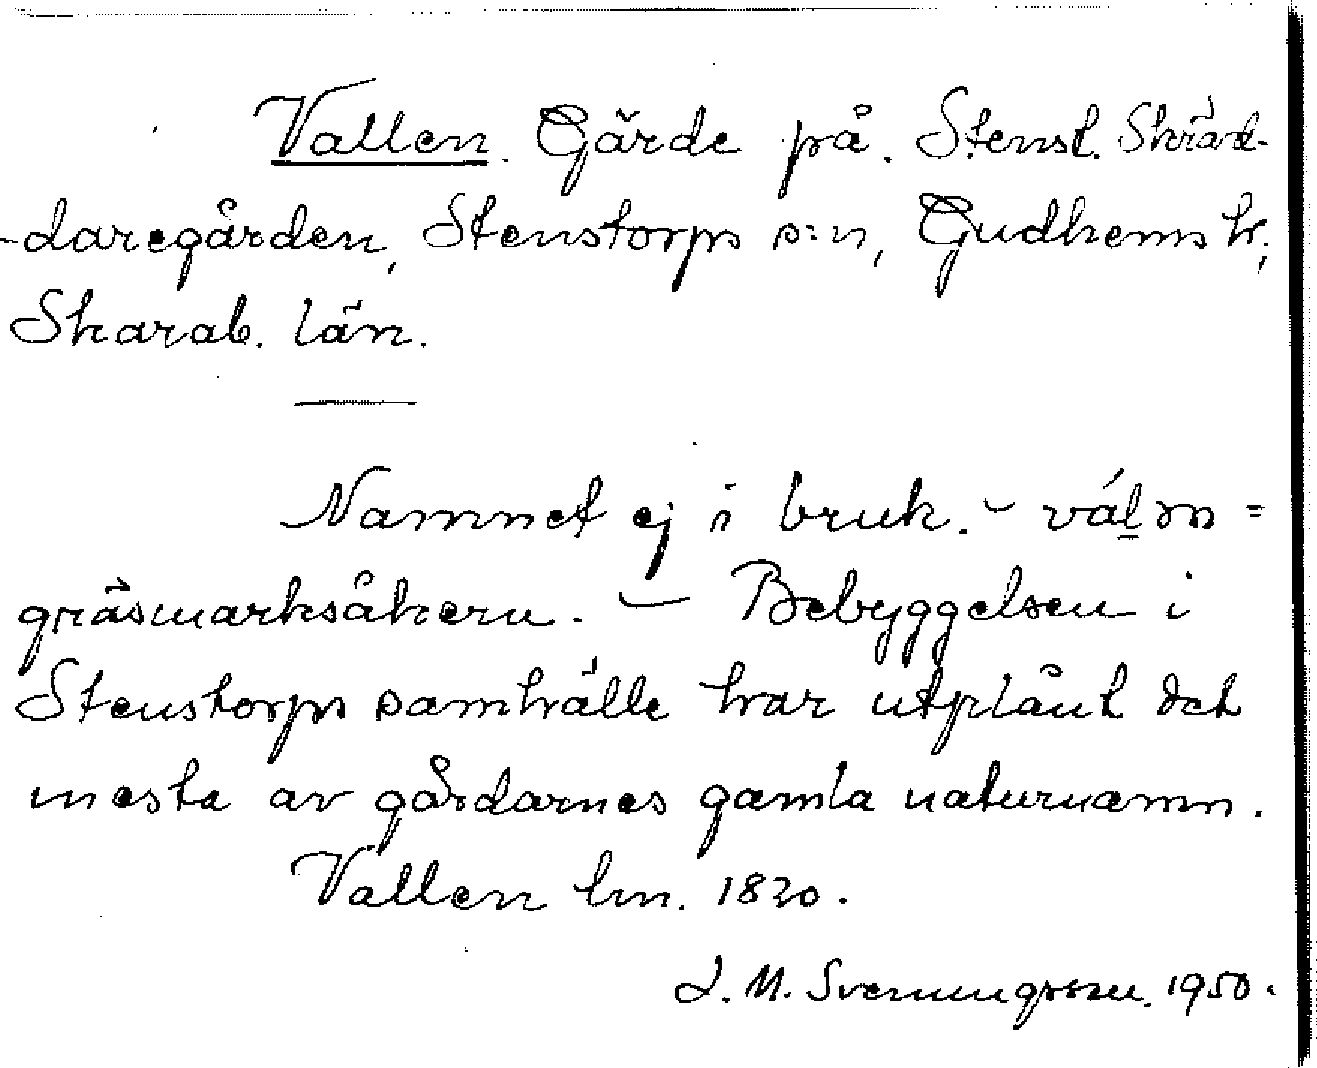 Vallen. Gärde på. Stenst. Skräd-
-daregården, Stenstorps s:n, Gudhems hr,
Skarab. län.
Namnet ej i bruk. – vál̲m =
gräsmarksåkern. – Bebyggelsen i
Stenstorps samhälle har utplånt det
mesta av gårdarnes gamla naturnamn.
Vallen lm. 1820.
J. M. Svenungsson. 1950.